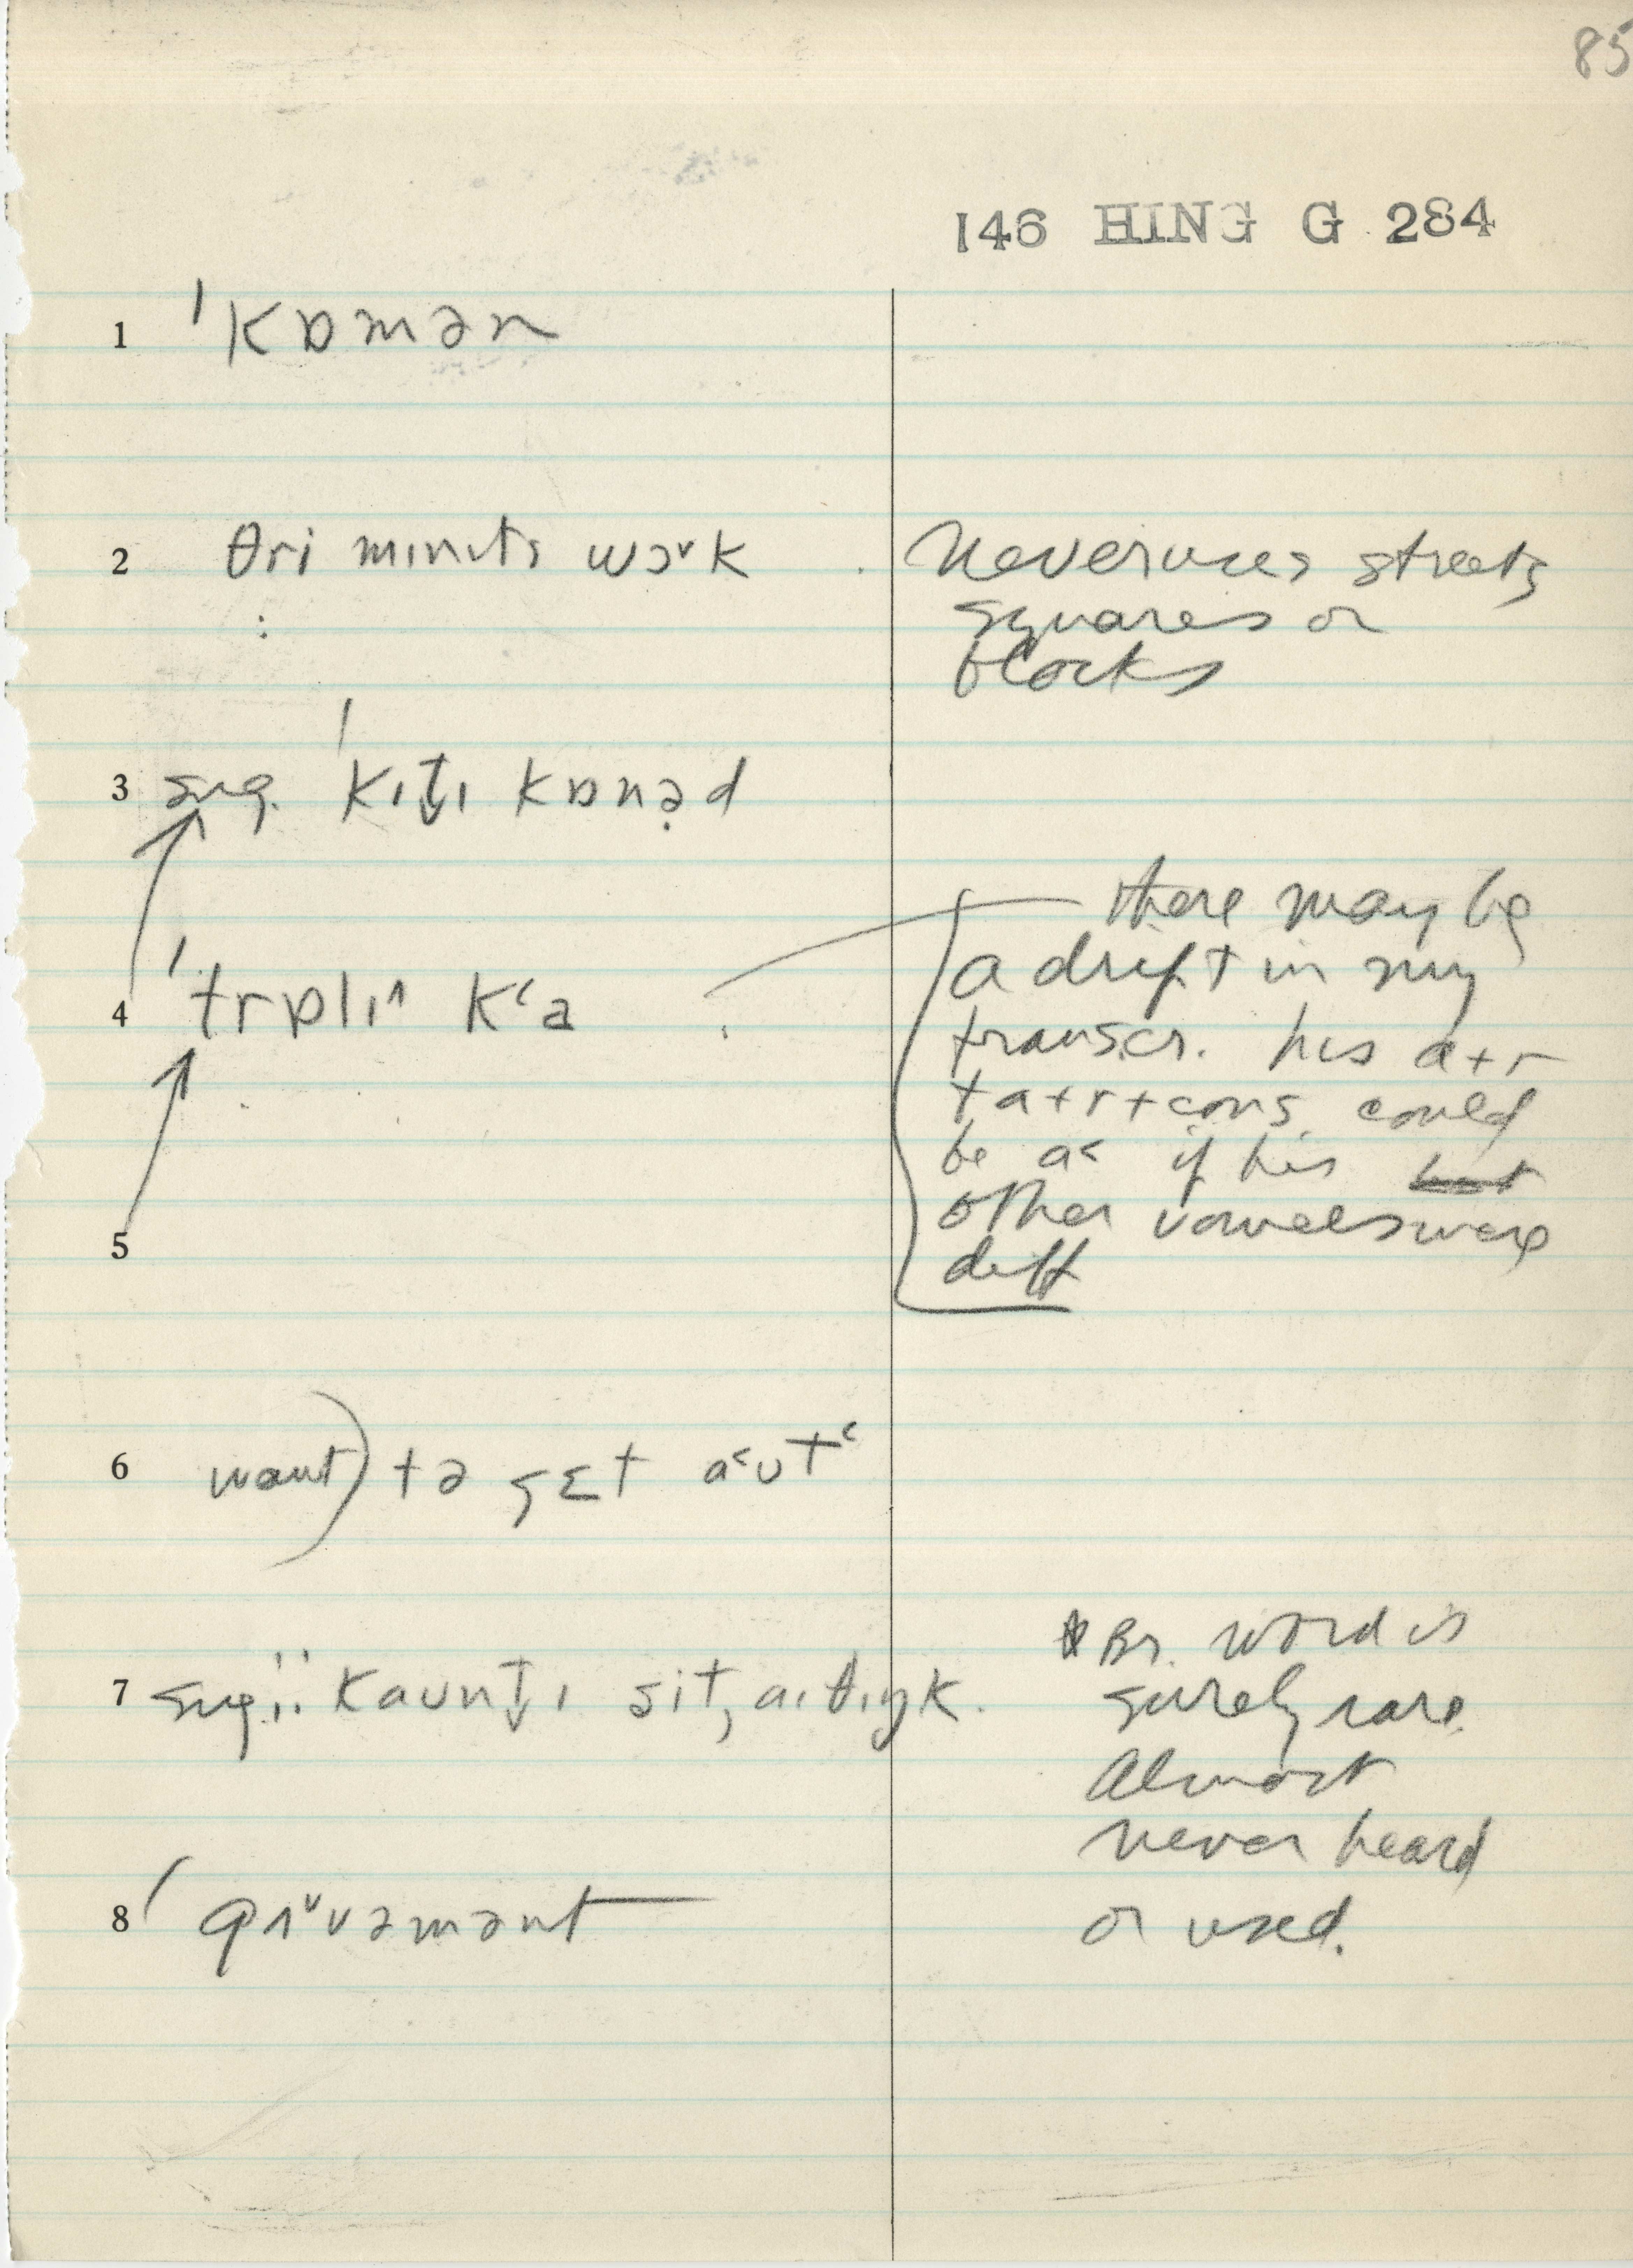 85
146 HING G 284
1 ˈkɒmən
2 θri mɪnɪts wɔ˅k
Never uses streets
squares or
blocks
3 sug. ˈkɪt̬ɪ kɒnəd
4 ˈtrɒlɪ^ k‘a
there may be
a drift in my
transcr. his a+r
+ a+r+cons. could
be a< if his but
other vowels were
diff
5
6 want) tə gɛt a<ʊt‘
7 sug.
* Br. word is
surely rare.
Almost
never heard
or used.
8 ˈgʌ˅vəmənt